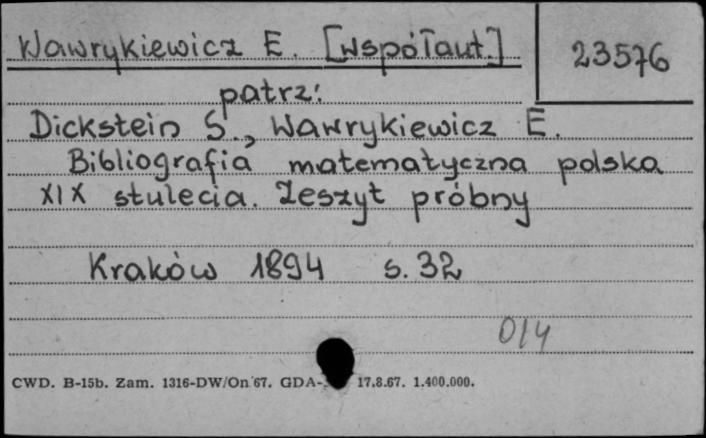 Wawrykiewicz E. [współaut.]
23576
patrz:
Dickstein S., Wawrykiewicz E.
Bibliografia matematyczna polska
XIX stulecia. Zeszyt próbny
Kraków 1894 s. 32
014
CWD. B-15b. Zam. 1316-DW/On 67. GDA- 17.8.67. 1.400.000.